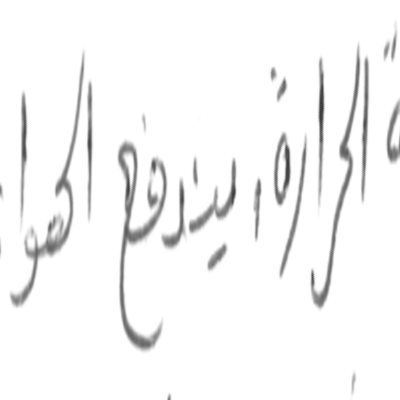 الحرارة، يندفع الهوا